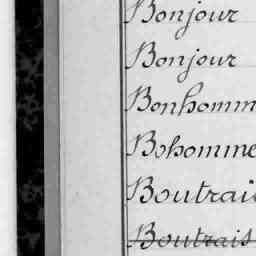 Bonjour
Bonjour
Bonhomm
Bohomme
Boutrai
Boutrais